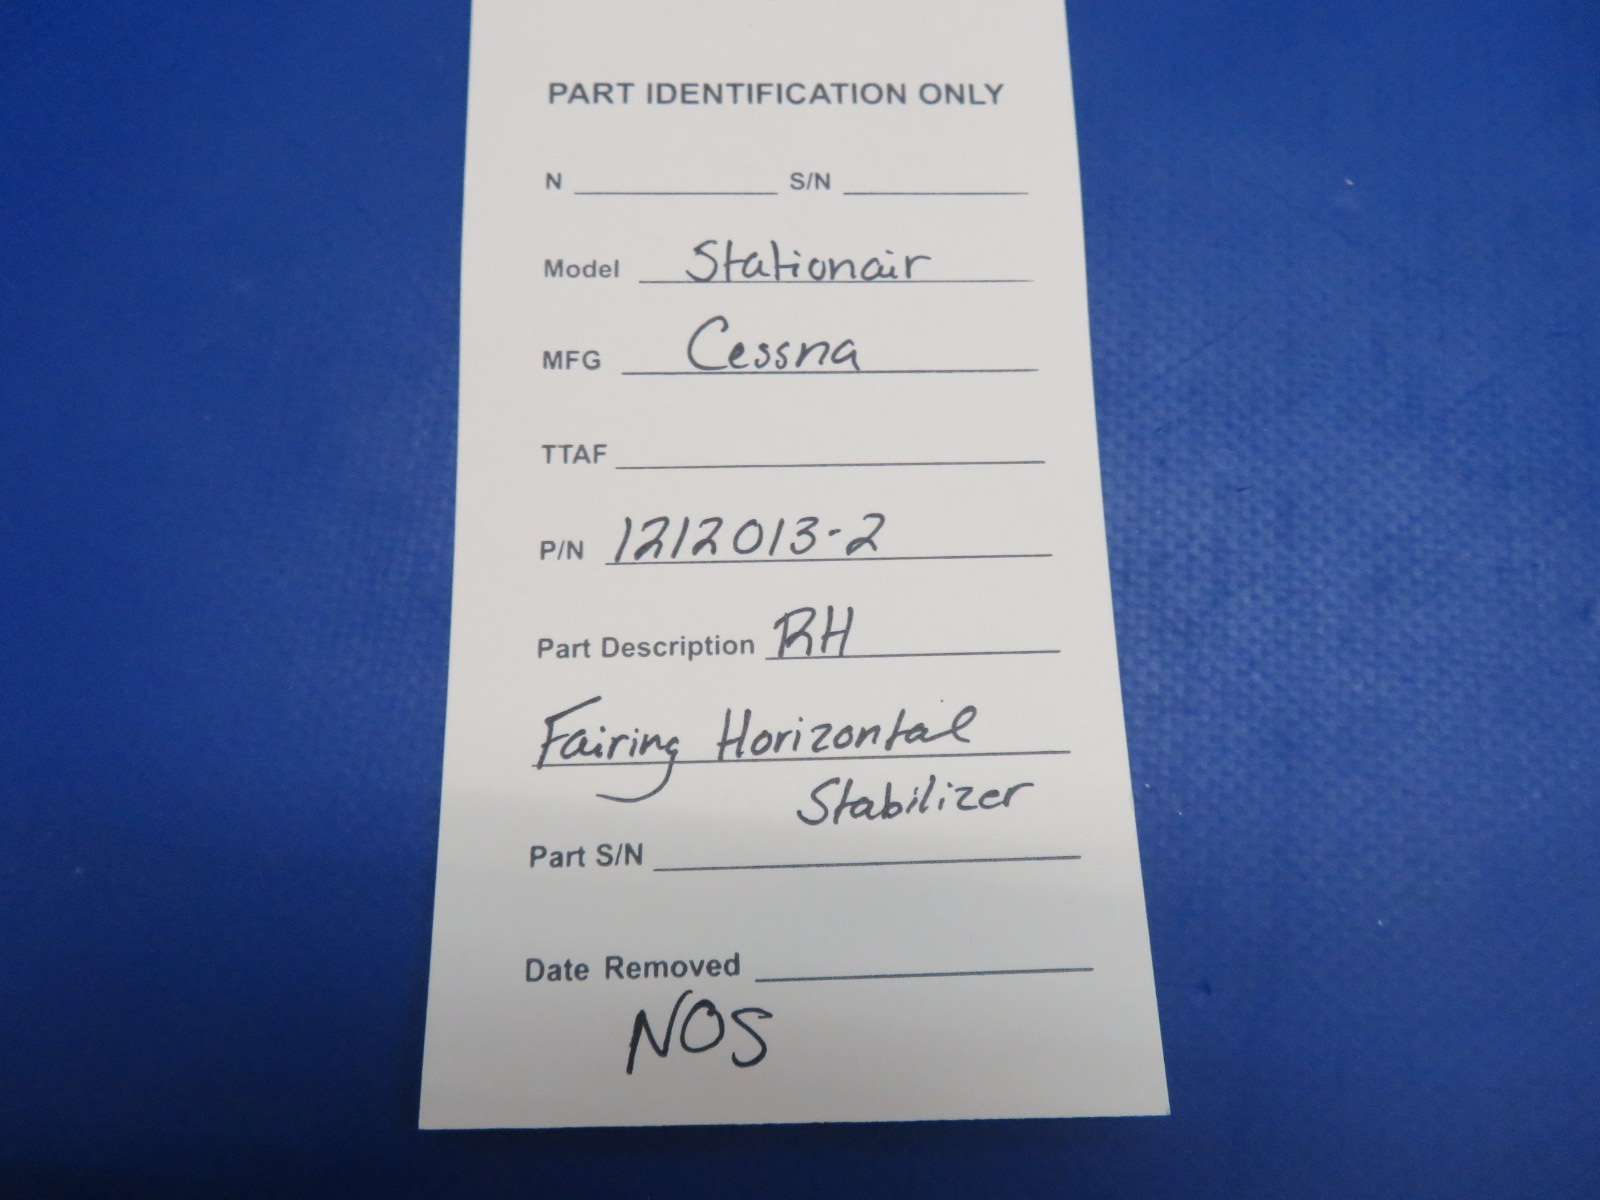 PART IDENTIFICATION ONLY
N S/N
Model Stationair
MFG Cessna
TTAF
P/N 1212013-2
Part Description RH
Fairing Horizontal
Stabilizer
Part S/N
Date Removed
NOS